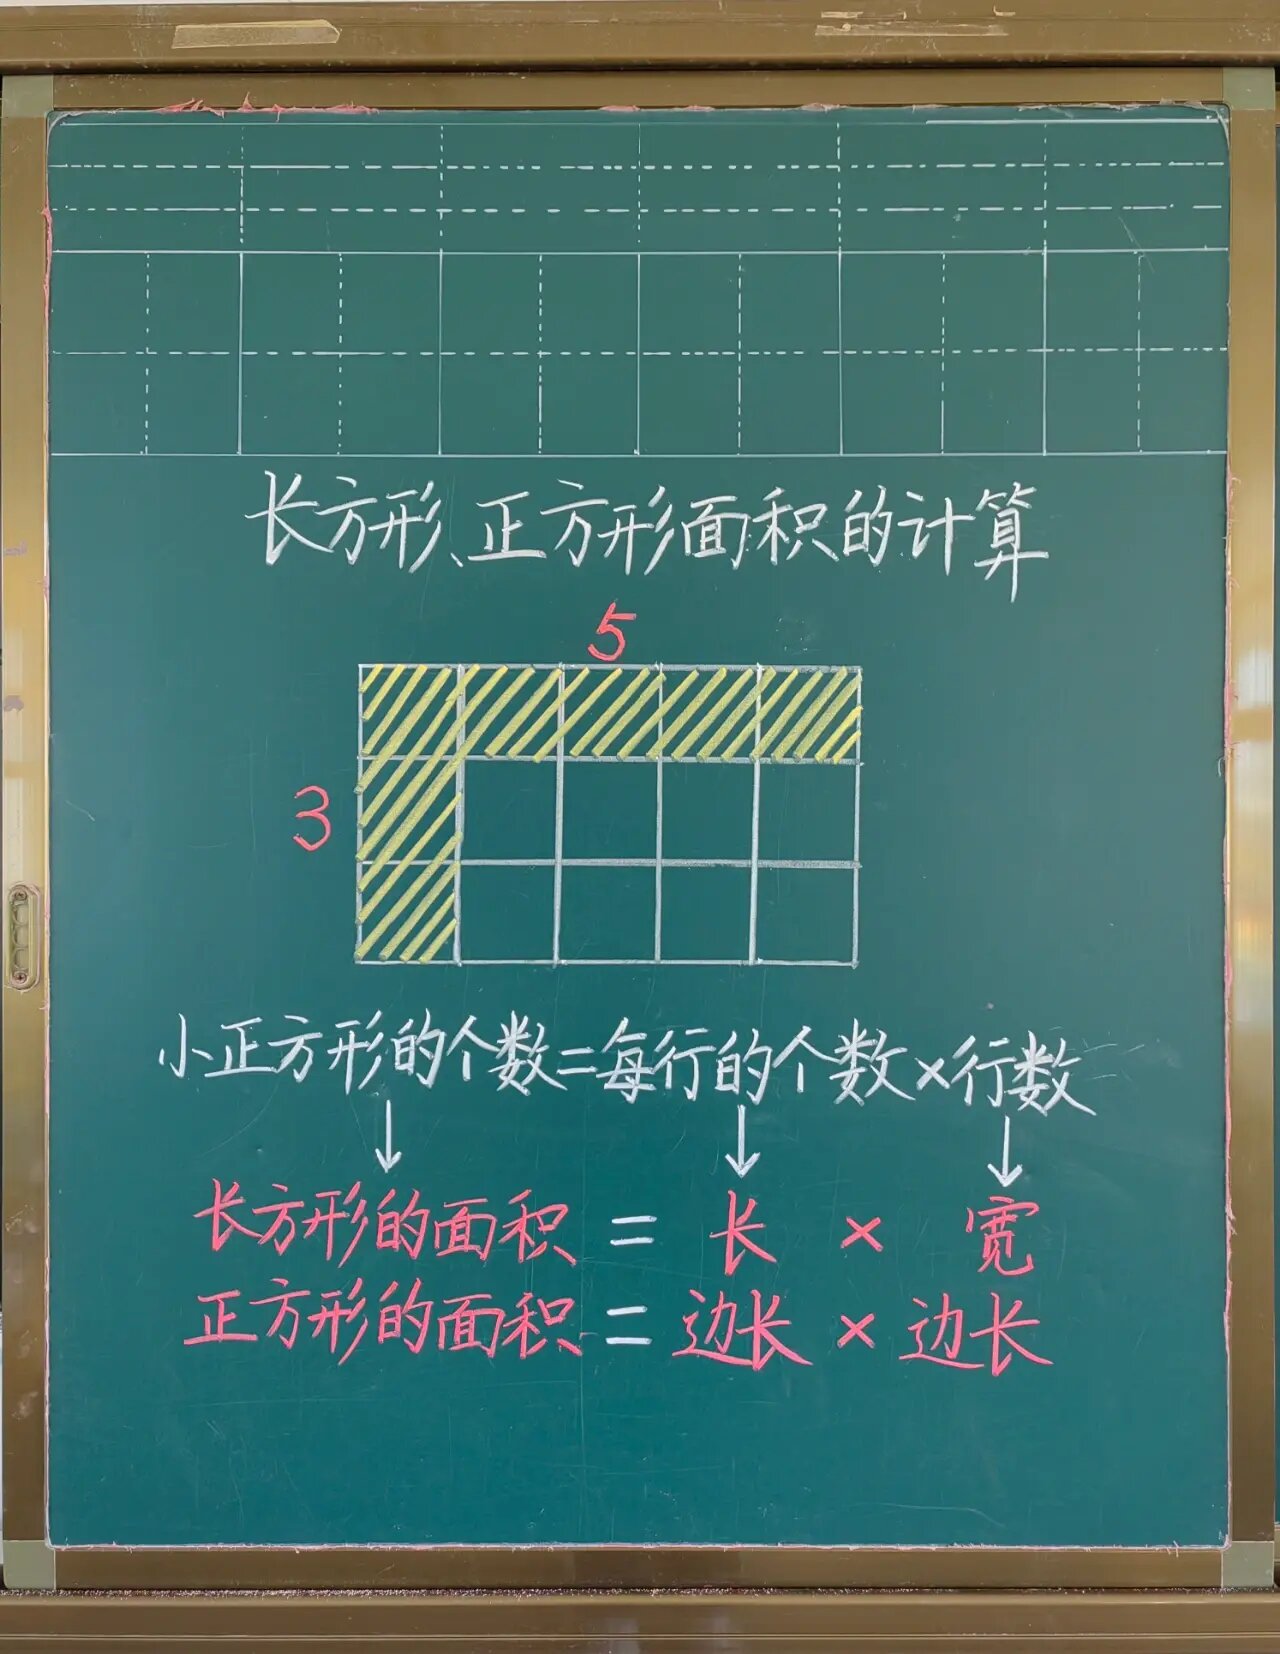 长方形、正方形面积的计算
5
3
小正方形的个数=每行的个数×行数
↓ ↓ ↓
长方形的面积 = 长 × 宽
正方形的面积 = 边长 × 边长